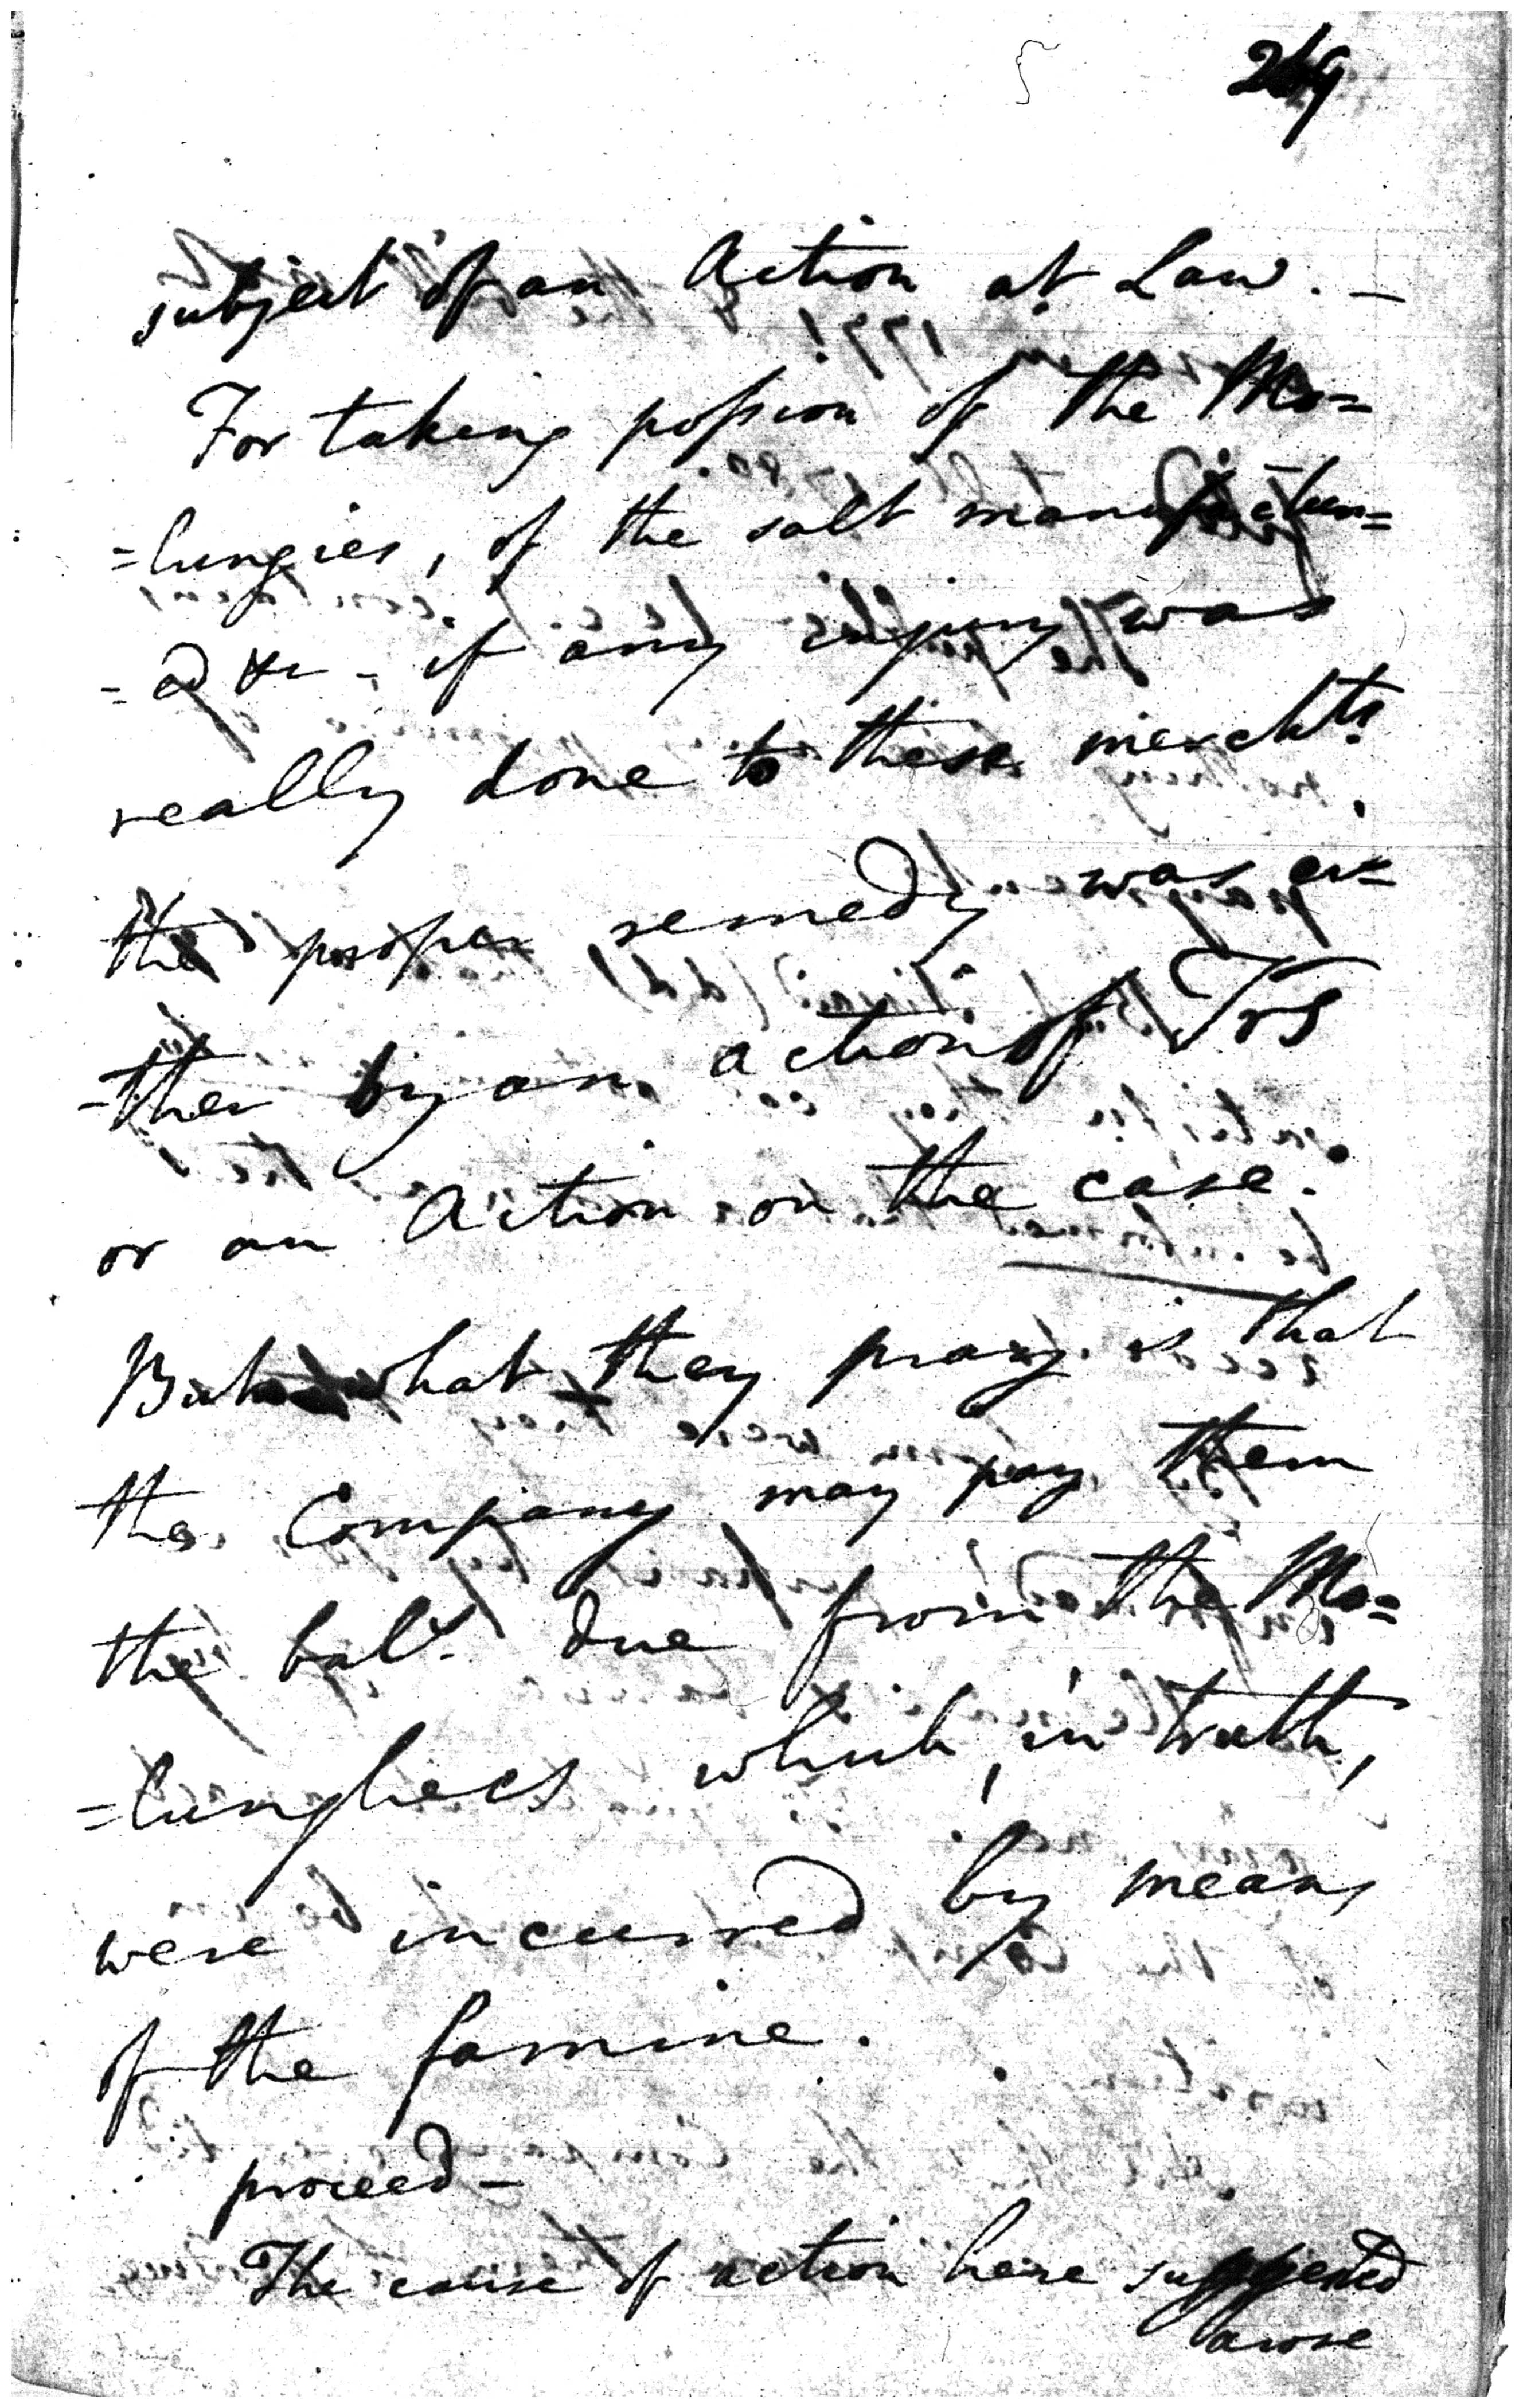 269
subject of an Action at Law. —
For taking possion of the Mo=
=lungies, of the salt manufactur=
=ed &c - if any injury was
really done to these mercht.s
the proper remedy was ei=
-ther by an action of Trs
or an Action on the case.
But what they pray is that
the Company may pay them
the bal.e due from the Mo=
=lunghees which, in truth,
were incurred by means
of the famine.
proceed -
The cause of action here suggested
arose